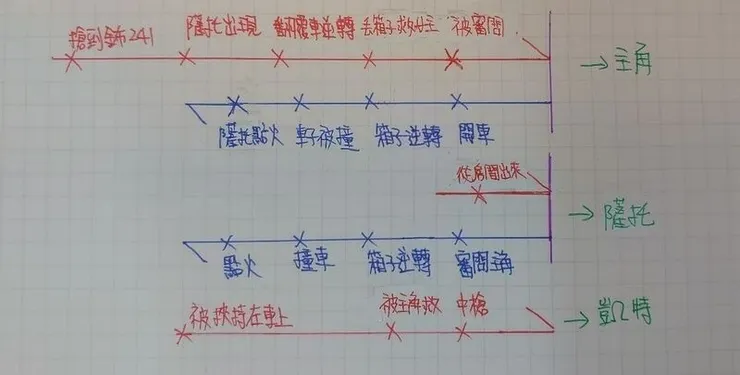 搶到鈽241 薩托出現 翻覆車逆轉 丟箱子救女主 被審問
→主角
薩托點火 車子被撞 箱子逆轉 開車
從房間出來
→薩托
點火 撞車 箱子逆轉 審問主角
被挾持在車上 被主角救 中槍
→凱特